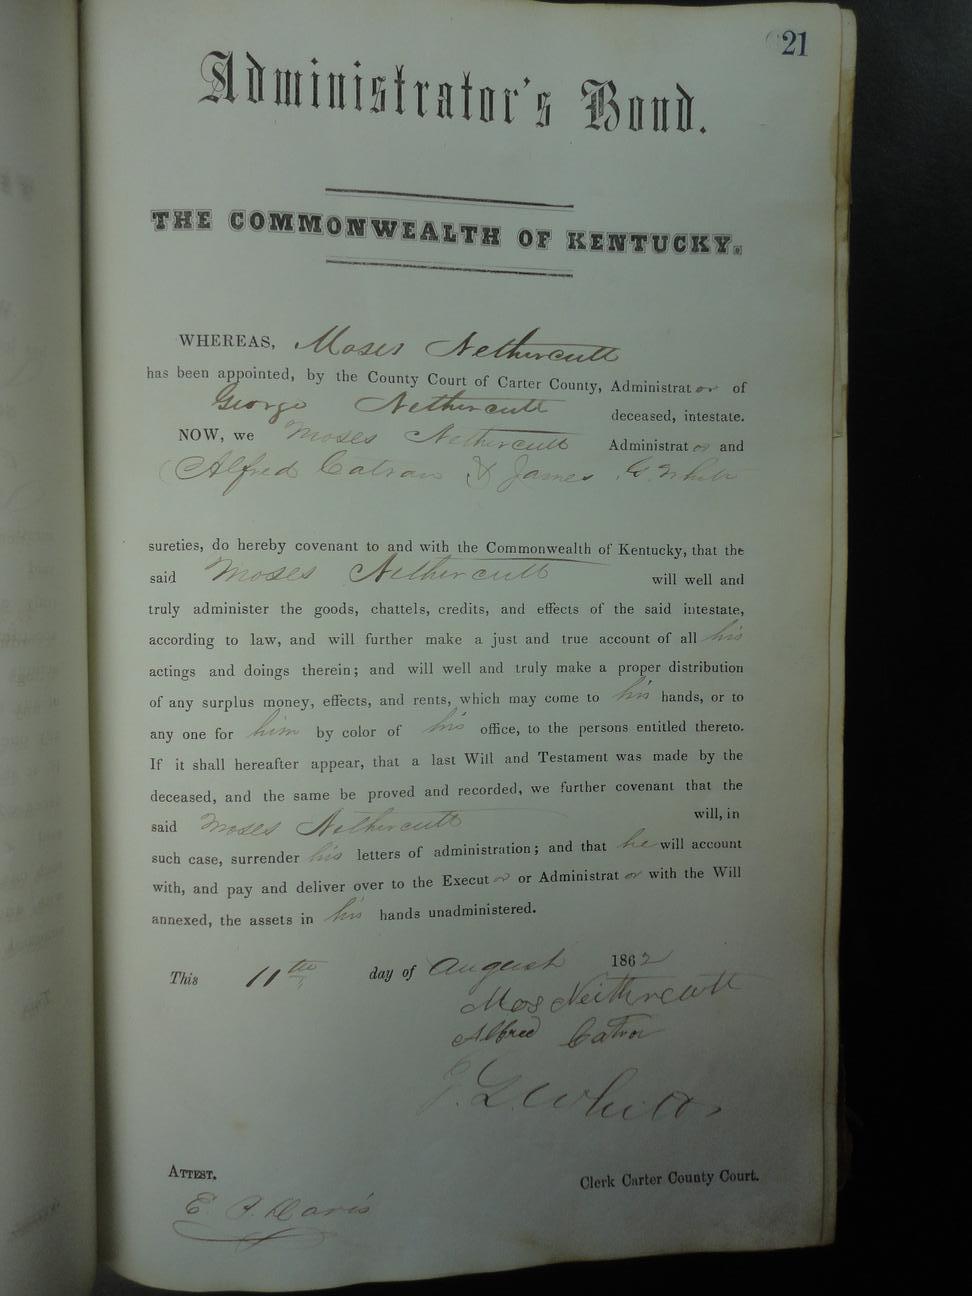 21
Administrator's Bond.
THE COMMONWEALTH OF KENTUCKY.
WHEREAS, Moses Nethercutt
has been appointed, by the County Court of Carter County, Administrator of
George Nethercutt deceased, intestate.
NOW, we Moses Nethercutt Administrator and
Alfred Catron & James G. White
sureties, do hereby covenant to and with the Commonwealth of Kentucky, that the
said Moses Nethercutt will well and
truly administer the goods, chattels, credits, and effects of the said intestate,
according to law, and will further make a just and true account of all his
actings and doings therein; and will well and truly make a proper distribution
of any surplus money, effects, and rents, which may come to his hands, or to
any one for him by color of his office, to the persons entitled thereto.
If it shall hereafter appear, that a last Will and Testament was made by the
deceased, and the same be proved and recorded, we further covenant that the
said Moses Nethercutt will, in
such case, surrender his letters of administration; and that he will account
with, and pay and deliver over to the Executor or Administrator with the Will
annexed, the assets in his hands unadministered.
This 11th day of August 1862
Mos Neithrcutt
Alfred Catron
ATTEST,
Clerk Carter County Court.
E. Davis